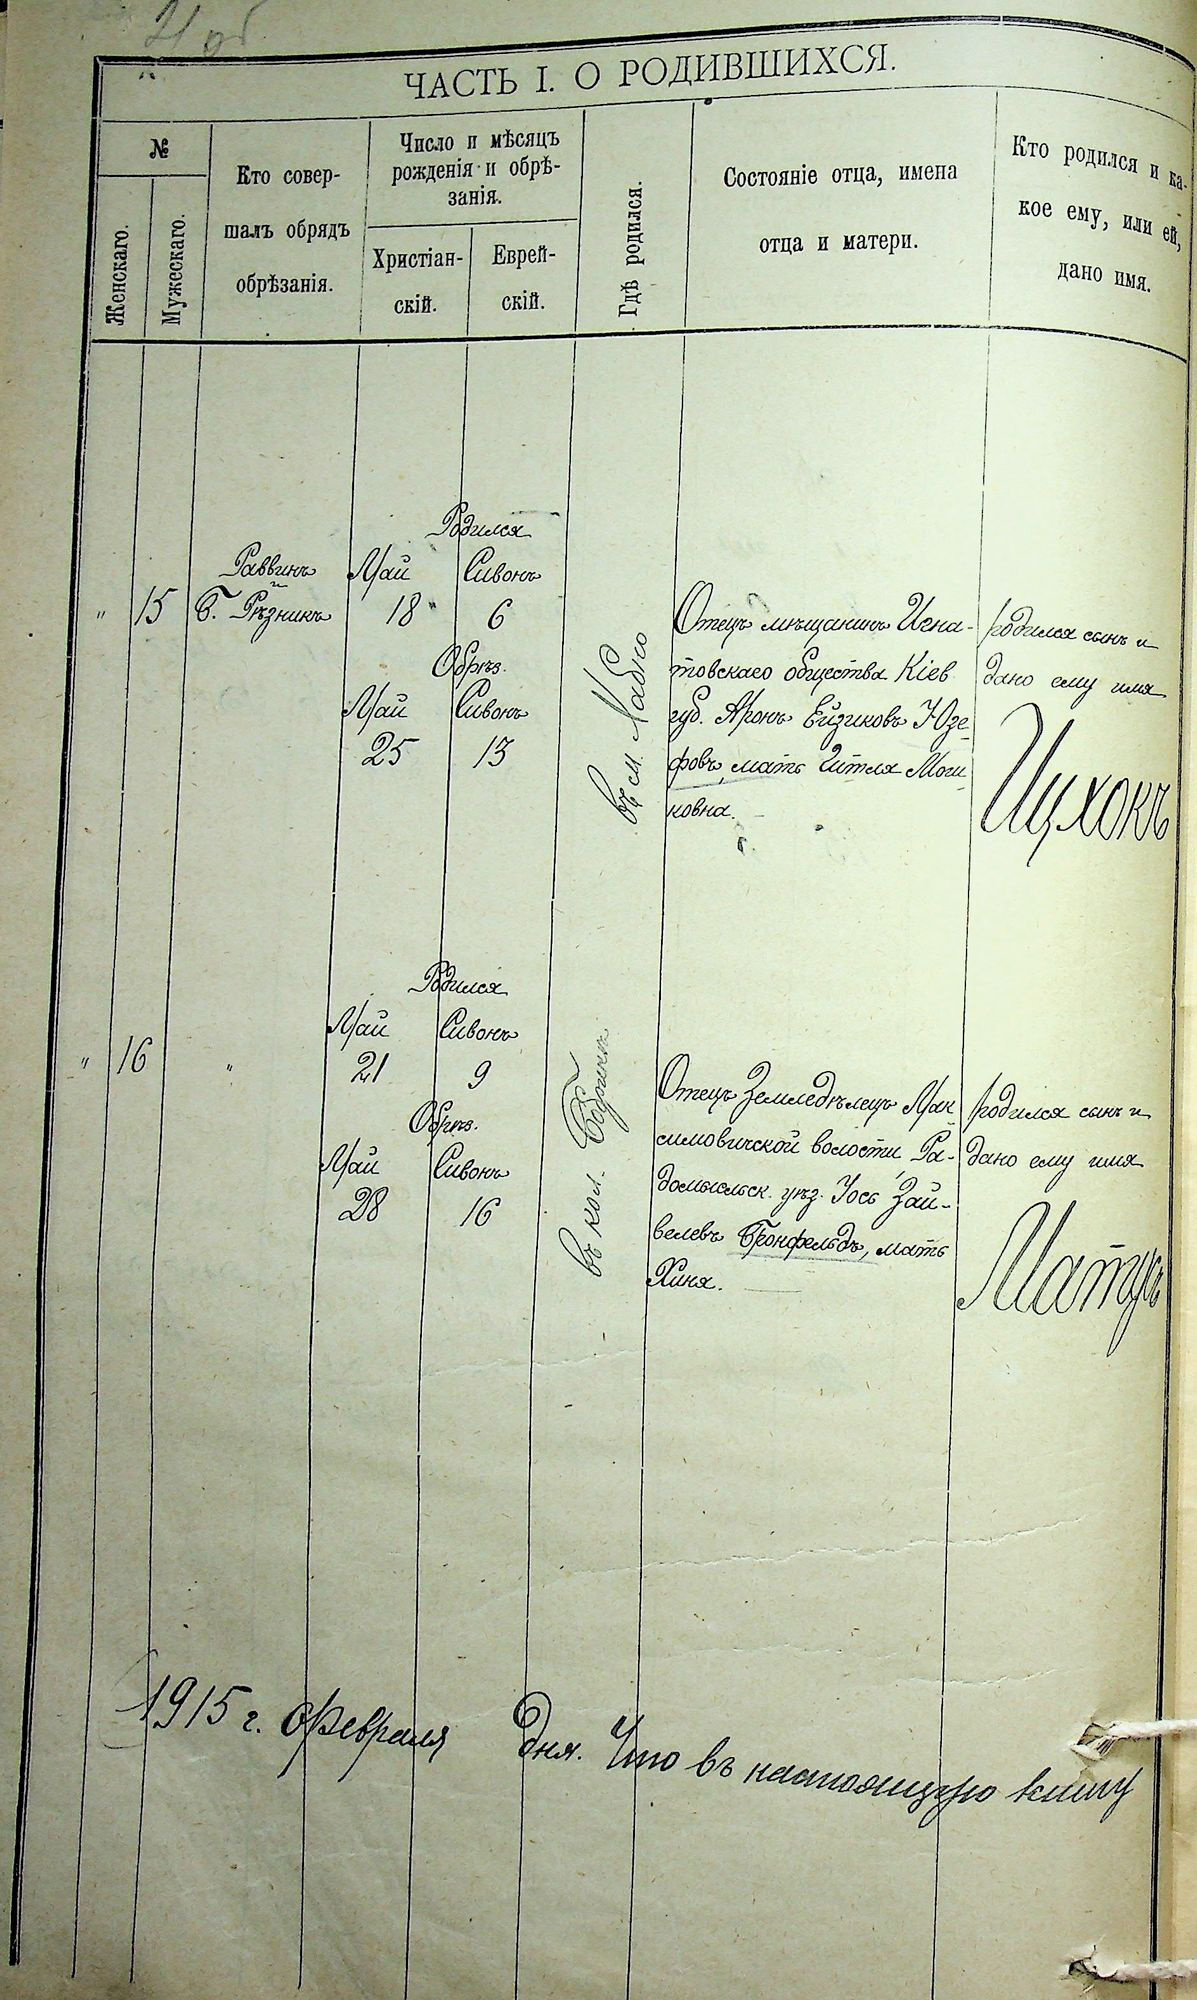 21 об
ЧАСТЬ I. О РОДИВШИХСЯ.
№
Женскаго.
Мужескаго.
Кто совер-
шалъ обрядъ
обрѣзанія.
Число и мѣсяцъ
рожденія и обрѣ-
занія.
Христіан-
скій.
Еврей-
скій.
Гдѣ родился.
Состояніе отца, имена
отца и матери.
Кто родился и ка-
кое ему, или ей,
дано имя.
" 15
Раввинъ
и
Б. Рѣзникъ
Родился
Май Сивонъ
18 6
Обрѣз.
Май Сивонъ
25 13
въ м.
Отецъ мѣщанинъ Игна-
товскаго общества Кіев
губ. Аронъ Ейзиковъ Юзе-
фовъ, мать Гитля Моги
ковна.
родился сынъ и
дано ему имя
Ицхокъ
" 16 "
Родился
Май Сивонъ
21 9
Обрѣз.
Май Сивонъ
28 16
въ кол.
Отецъ Земледѣлецъ Мак
симовичской волости, Ра-
домысльск. уѣз. Іось Зай-
велевъ Бронфельдъ, мать
Хиня.
родился сынъ и
дано ему имя
Матусъ
1915 г. Февраля дня. Что въ настоящую книгу